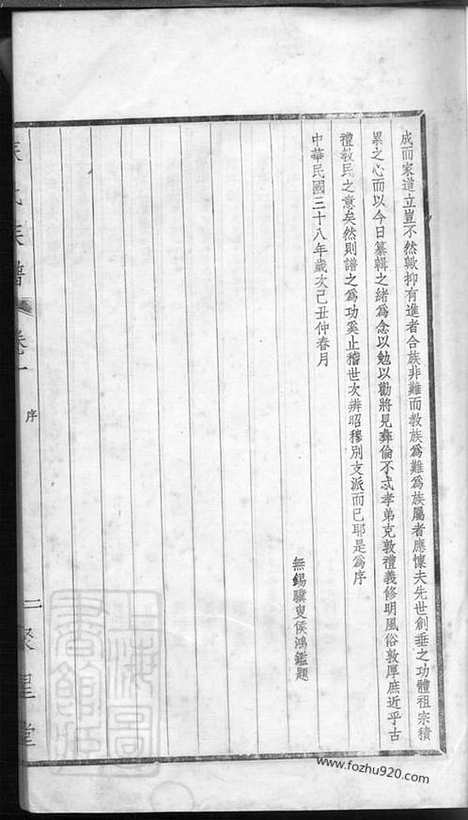 成而家道立豈不然歟抑有進者合族非難而教族爲難爲族屬者應懷夫先世創垂之功體祖宗積
累之心而以今日纂輯之緒爲念以勉以勸將見彝倫不忒孝弟克敦禮義修明風俗敦厚庶近乎古
禮教民之意矣然則譜之爲功奚止稽世次辨昭穆別支派而已耶是爲序
中華民國三十八年歲次己丑仲春月
無錫驥叟侯鴻鑑題
氏族譜
卷一
序
二
聚星堂
上海圖書館藏
www.fozhu920.com